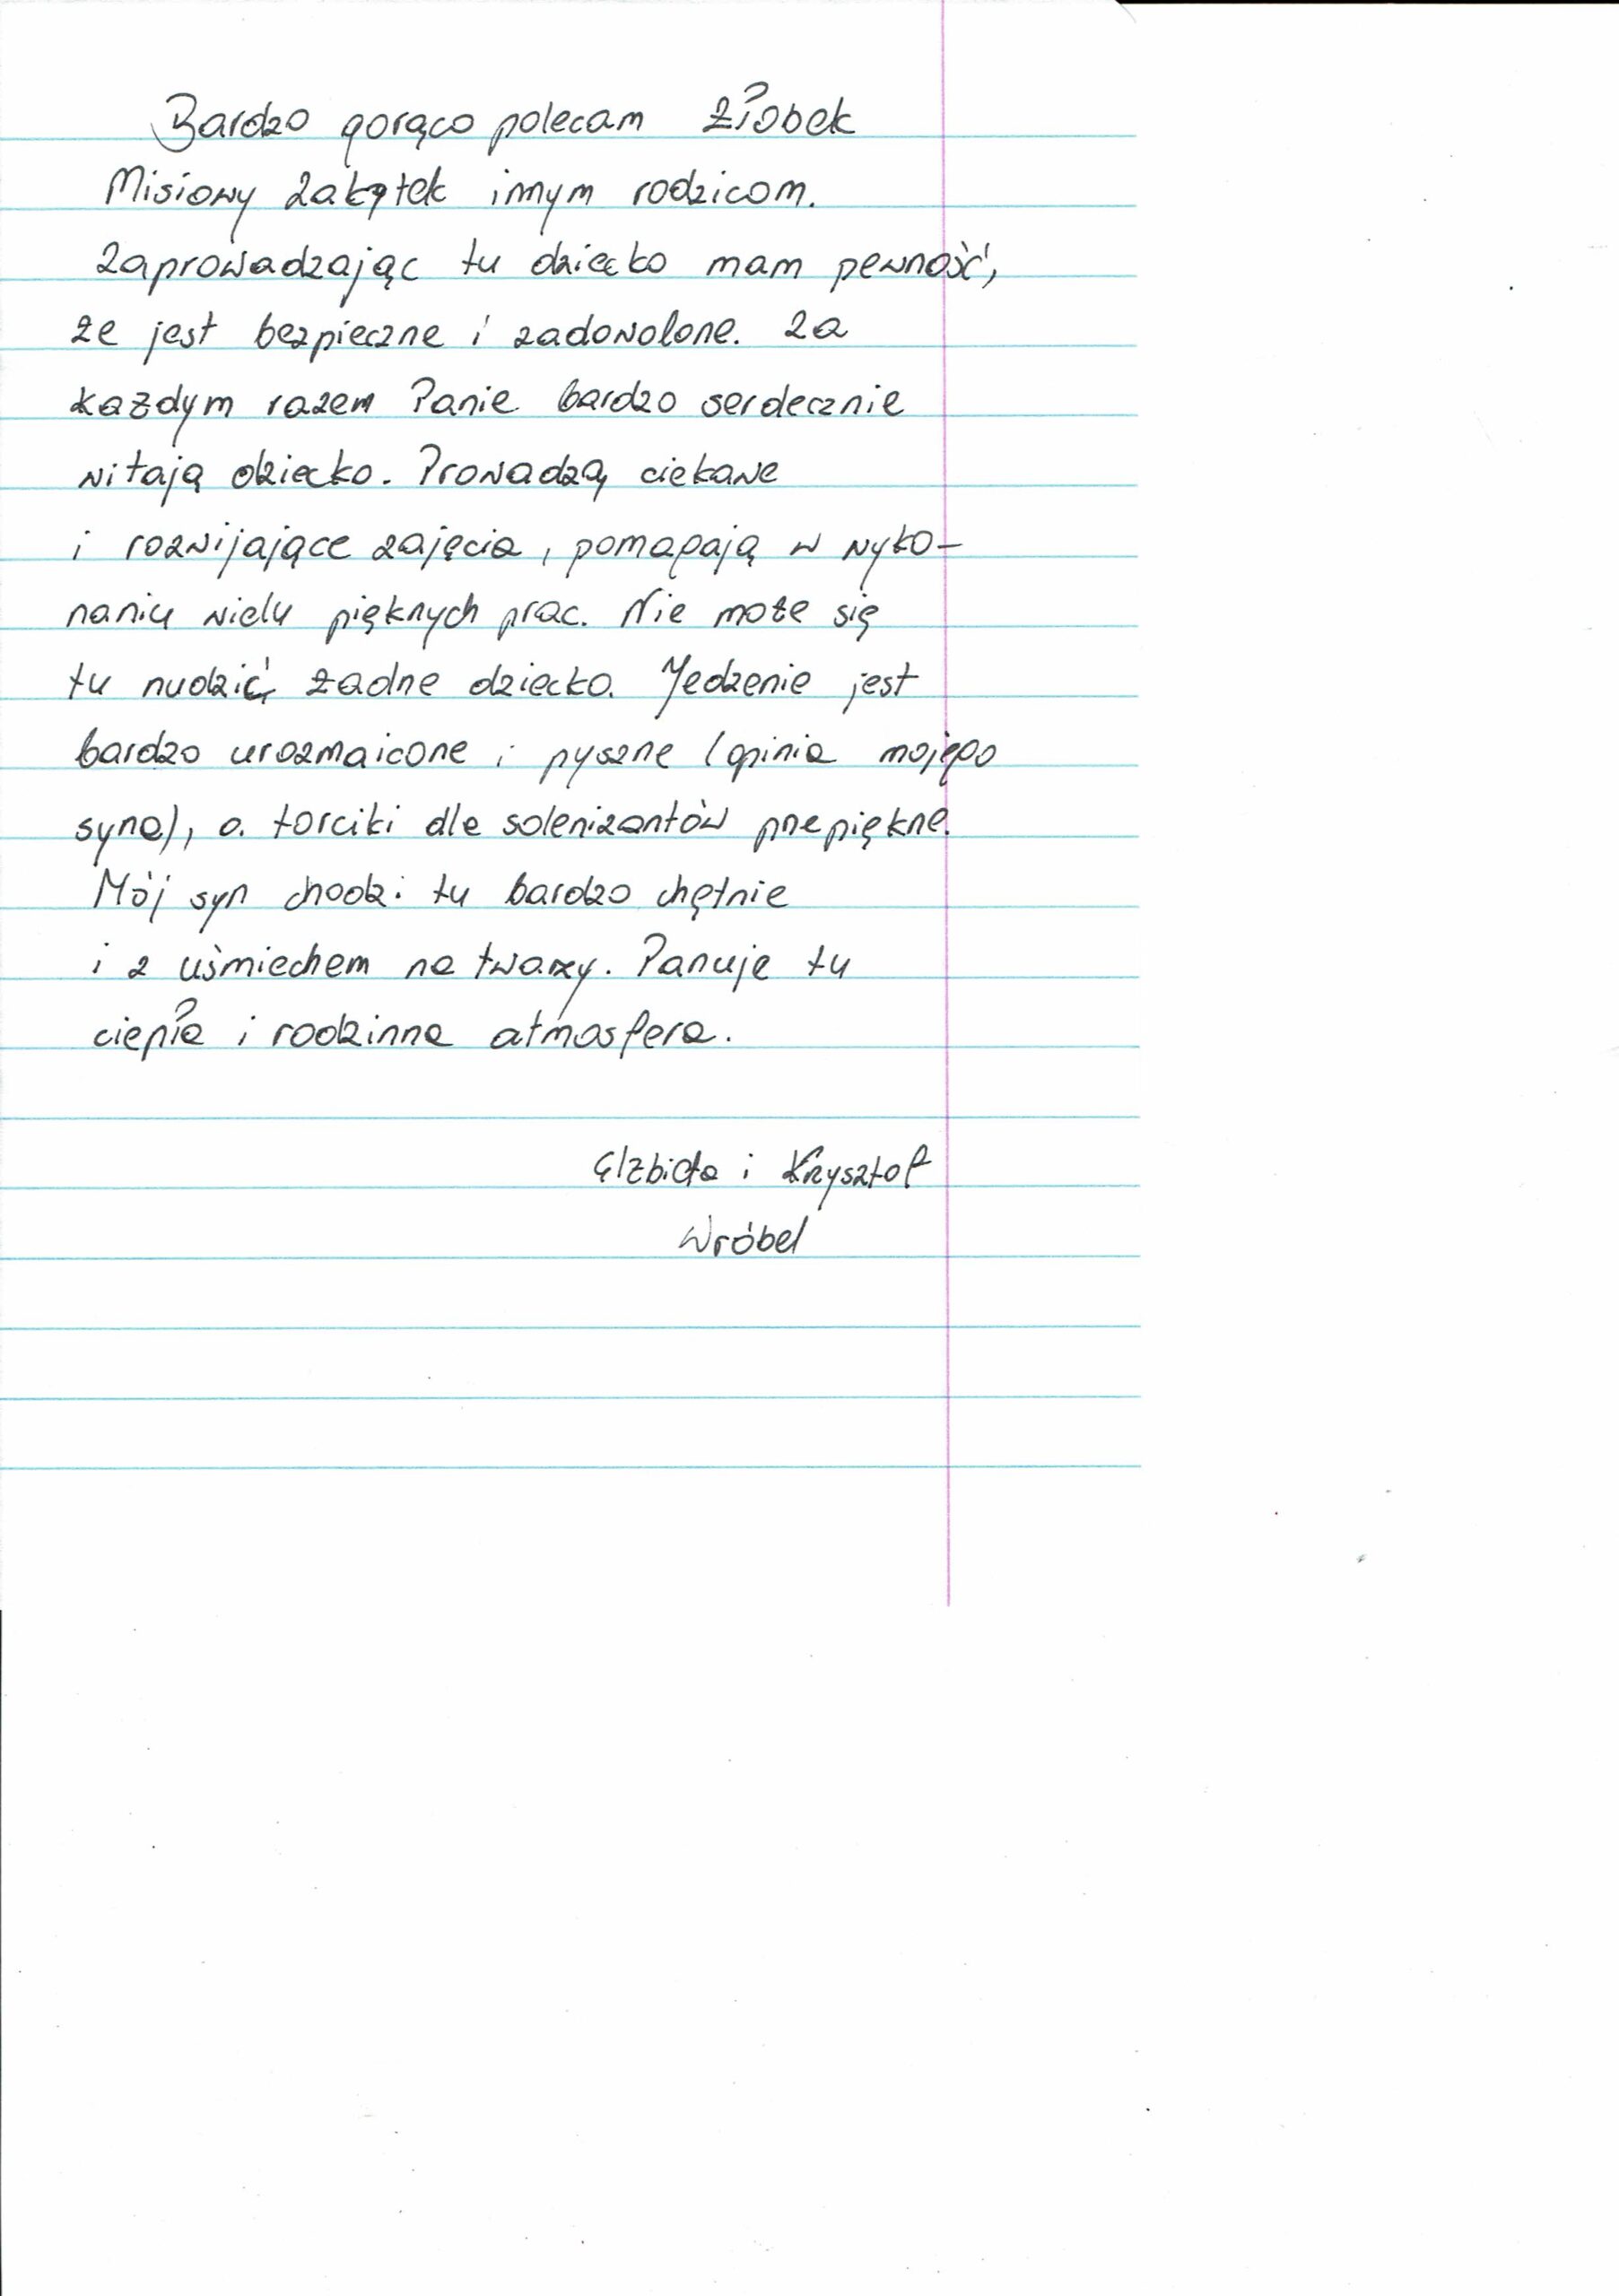 Bardzo gorąco polecam Żłobek
Misiowy Zakątek innym rodzicom.
Zaprowadzając tu dziecko mam pewność,
że jest bezpieczne i zadowolone. Za
każdym razem Panie bardzo serdecznie
witają dziecko. Prowadzą ciekawe
i rozwijające zajęcia, pomagają w wyko-
naniu wielu pięknych prac. Nie może się
tu nudzić żadne dziecko. Jedzenie jest
bardzo urozmaicone i pyszne (opinia mojego
syna), a torciki dla solenizantów przepiękne.
Mój syn chodzi tu bardzo chętnie
i z uśmiechem na twarzy. Panuje tu
ciepła i rodzinna atmosfera.
Elżbieta i Krzysztof
Wróbel